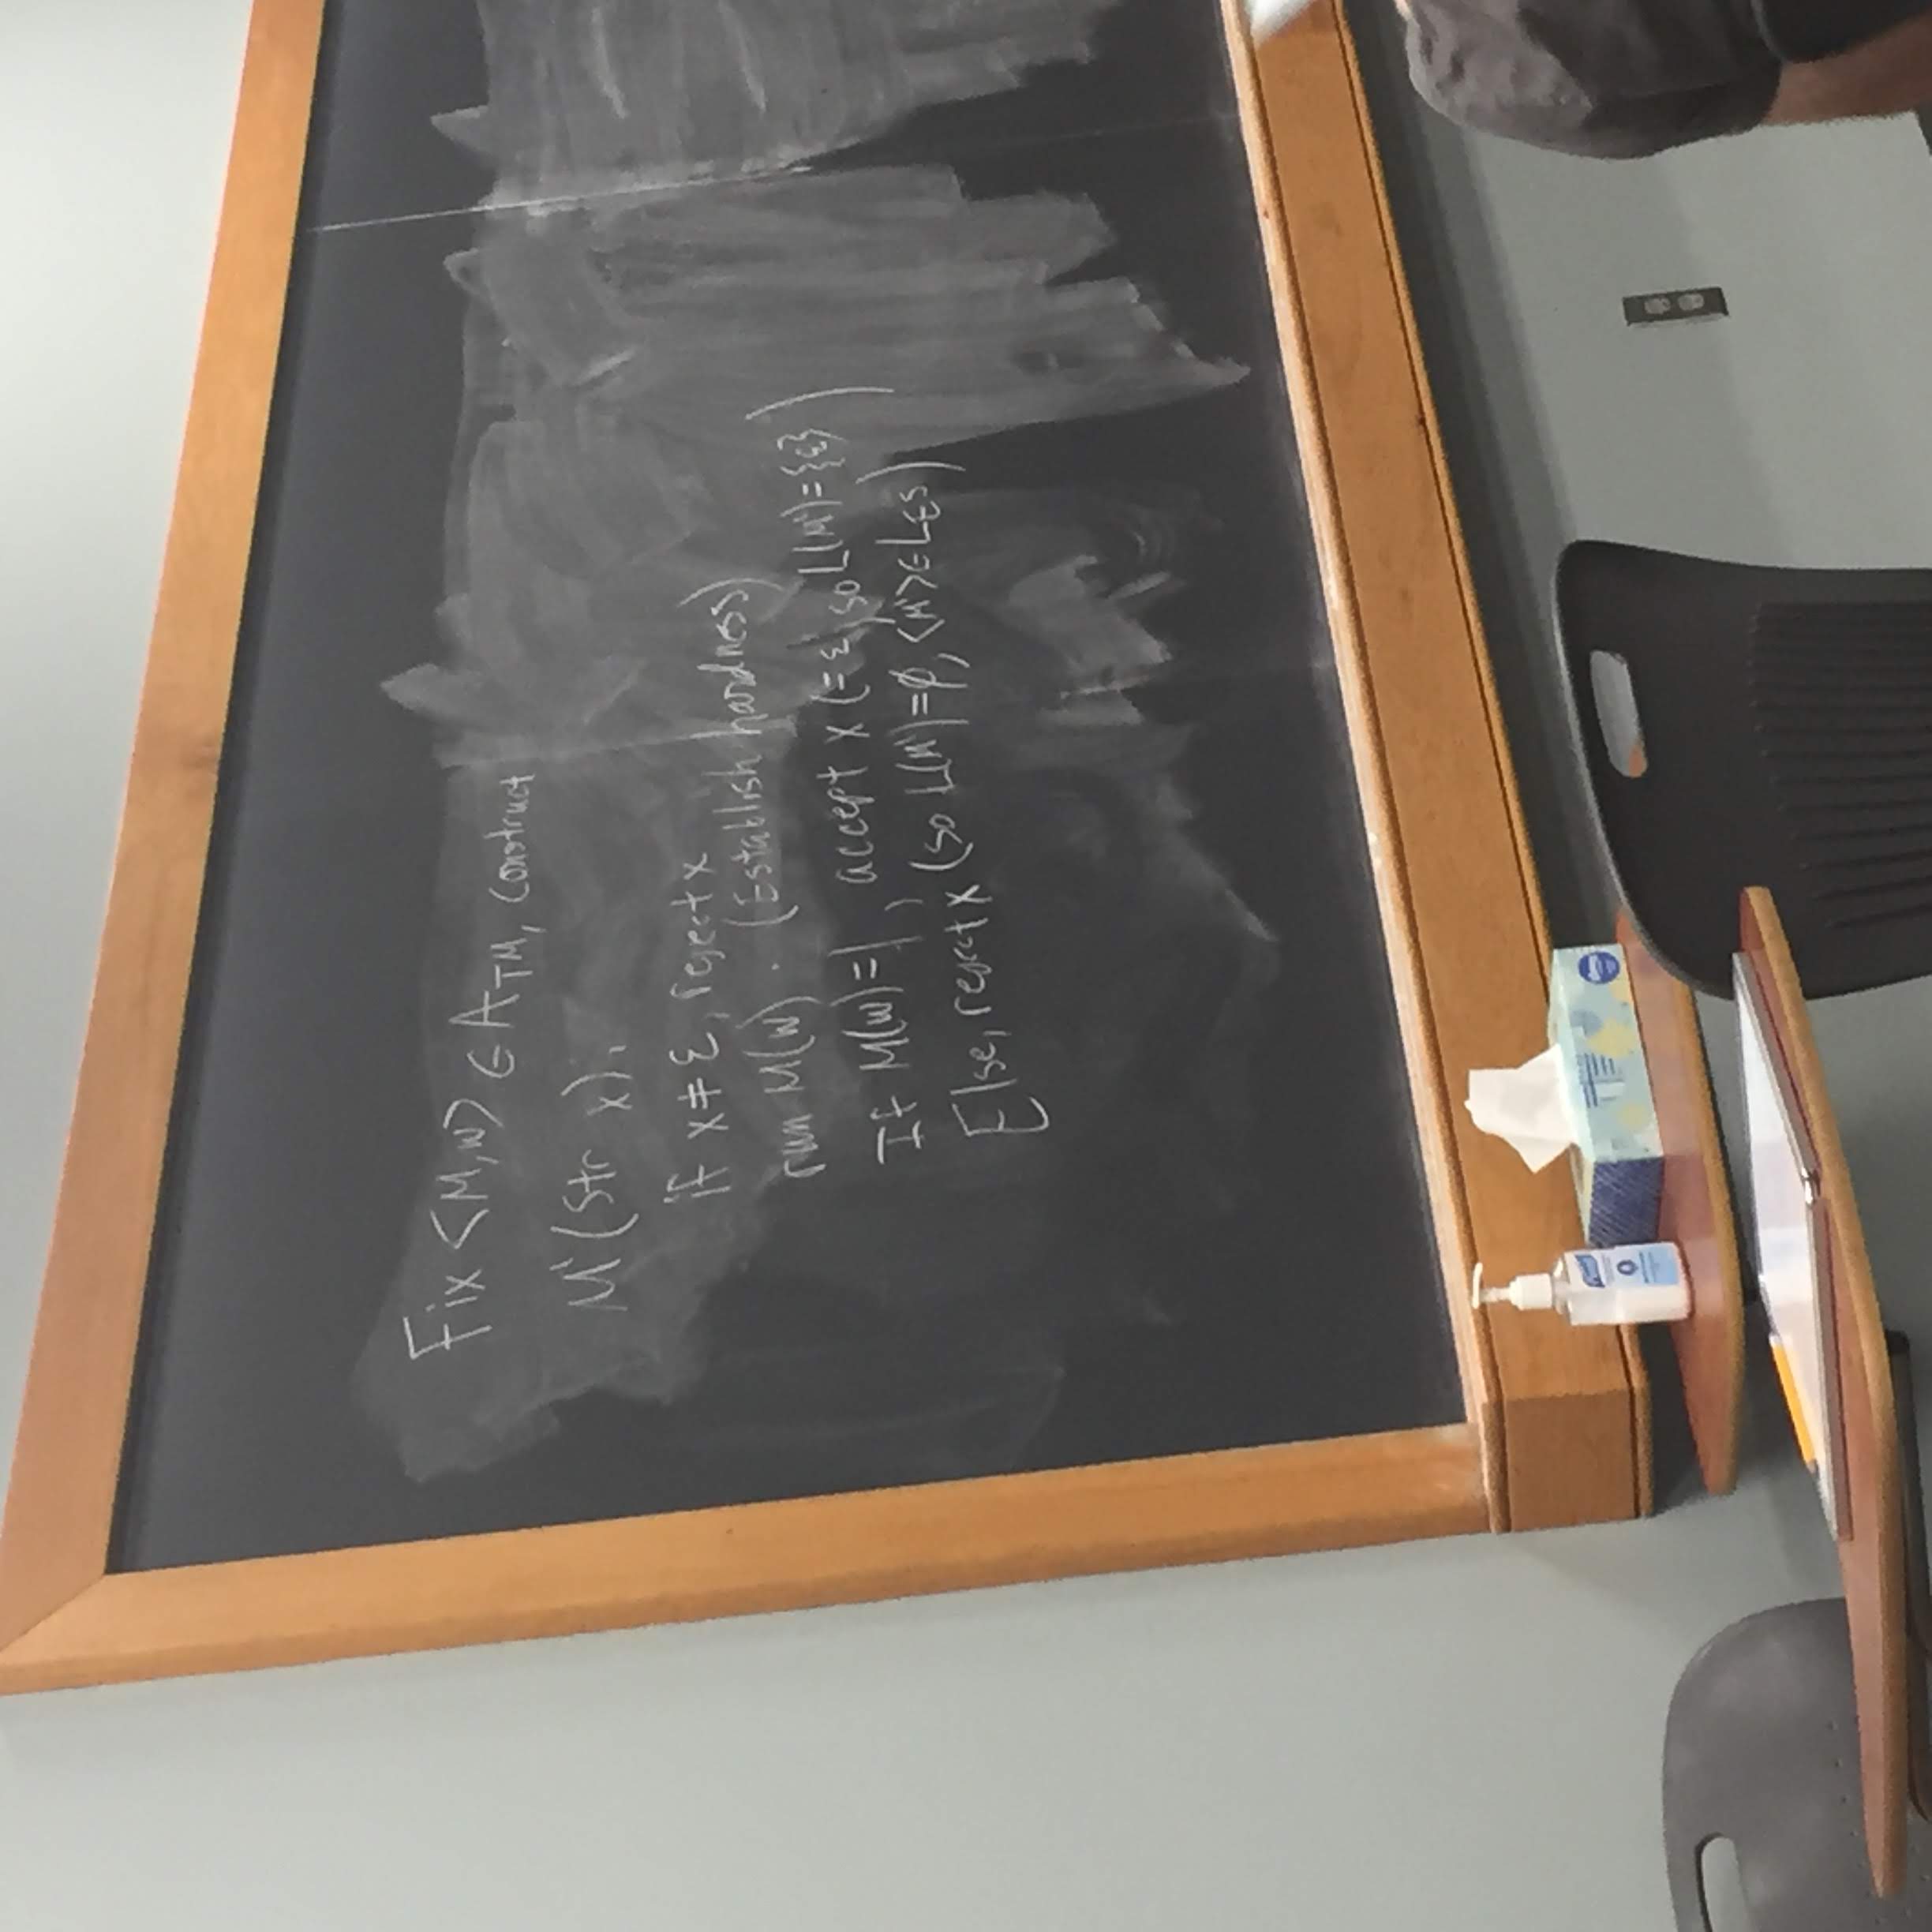 Fix <M,w> ∈ A_TM, construct
M'(Str x):
if x≠ε, reject x
run M(w). (Establish hardness)
If M(w)=1, accept x (=ε, so L(M')={ε})
Else, reject x (so L(M')=∅, <M'>∈L_ES)